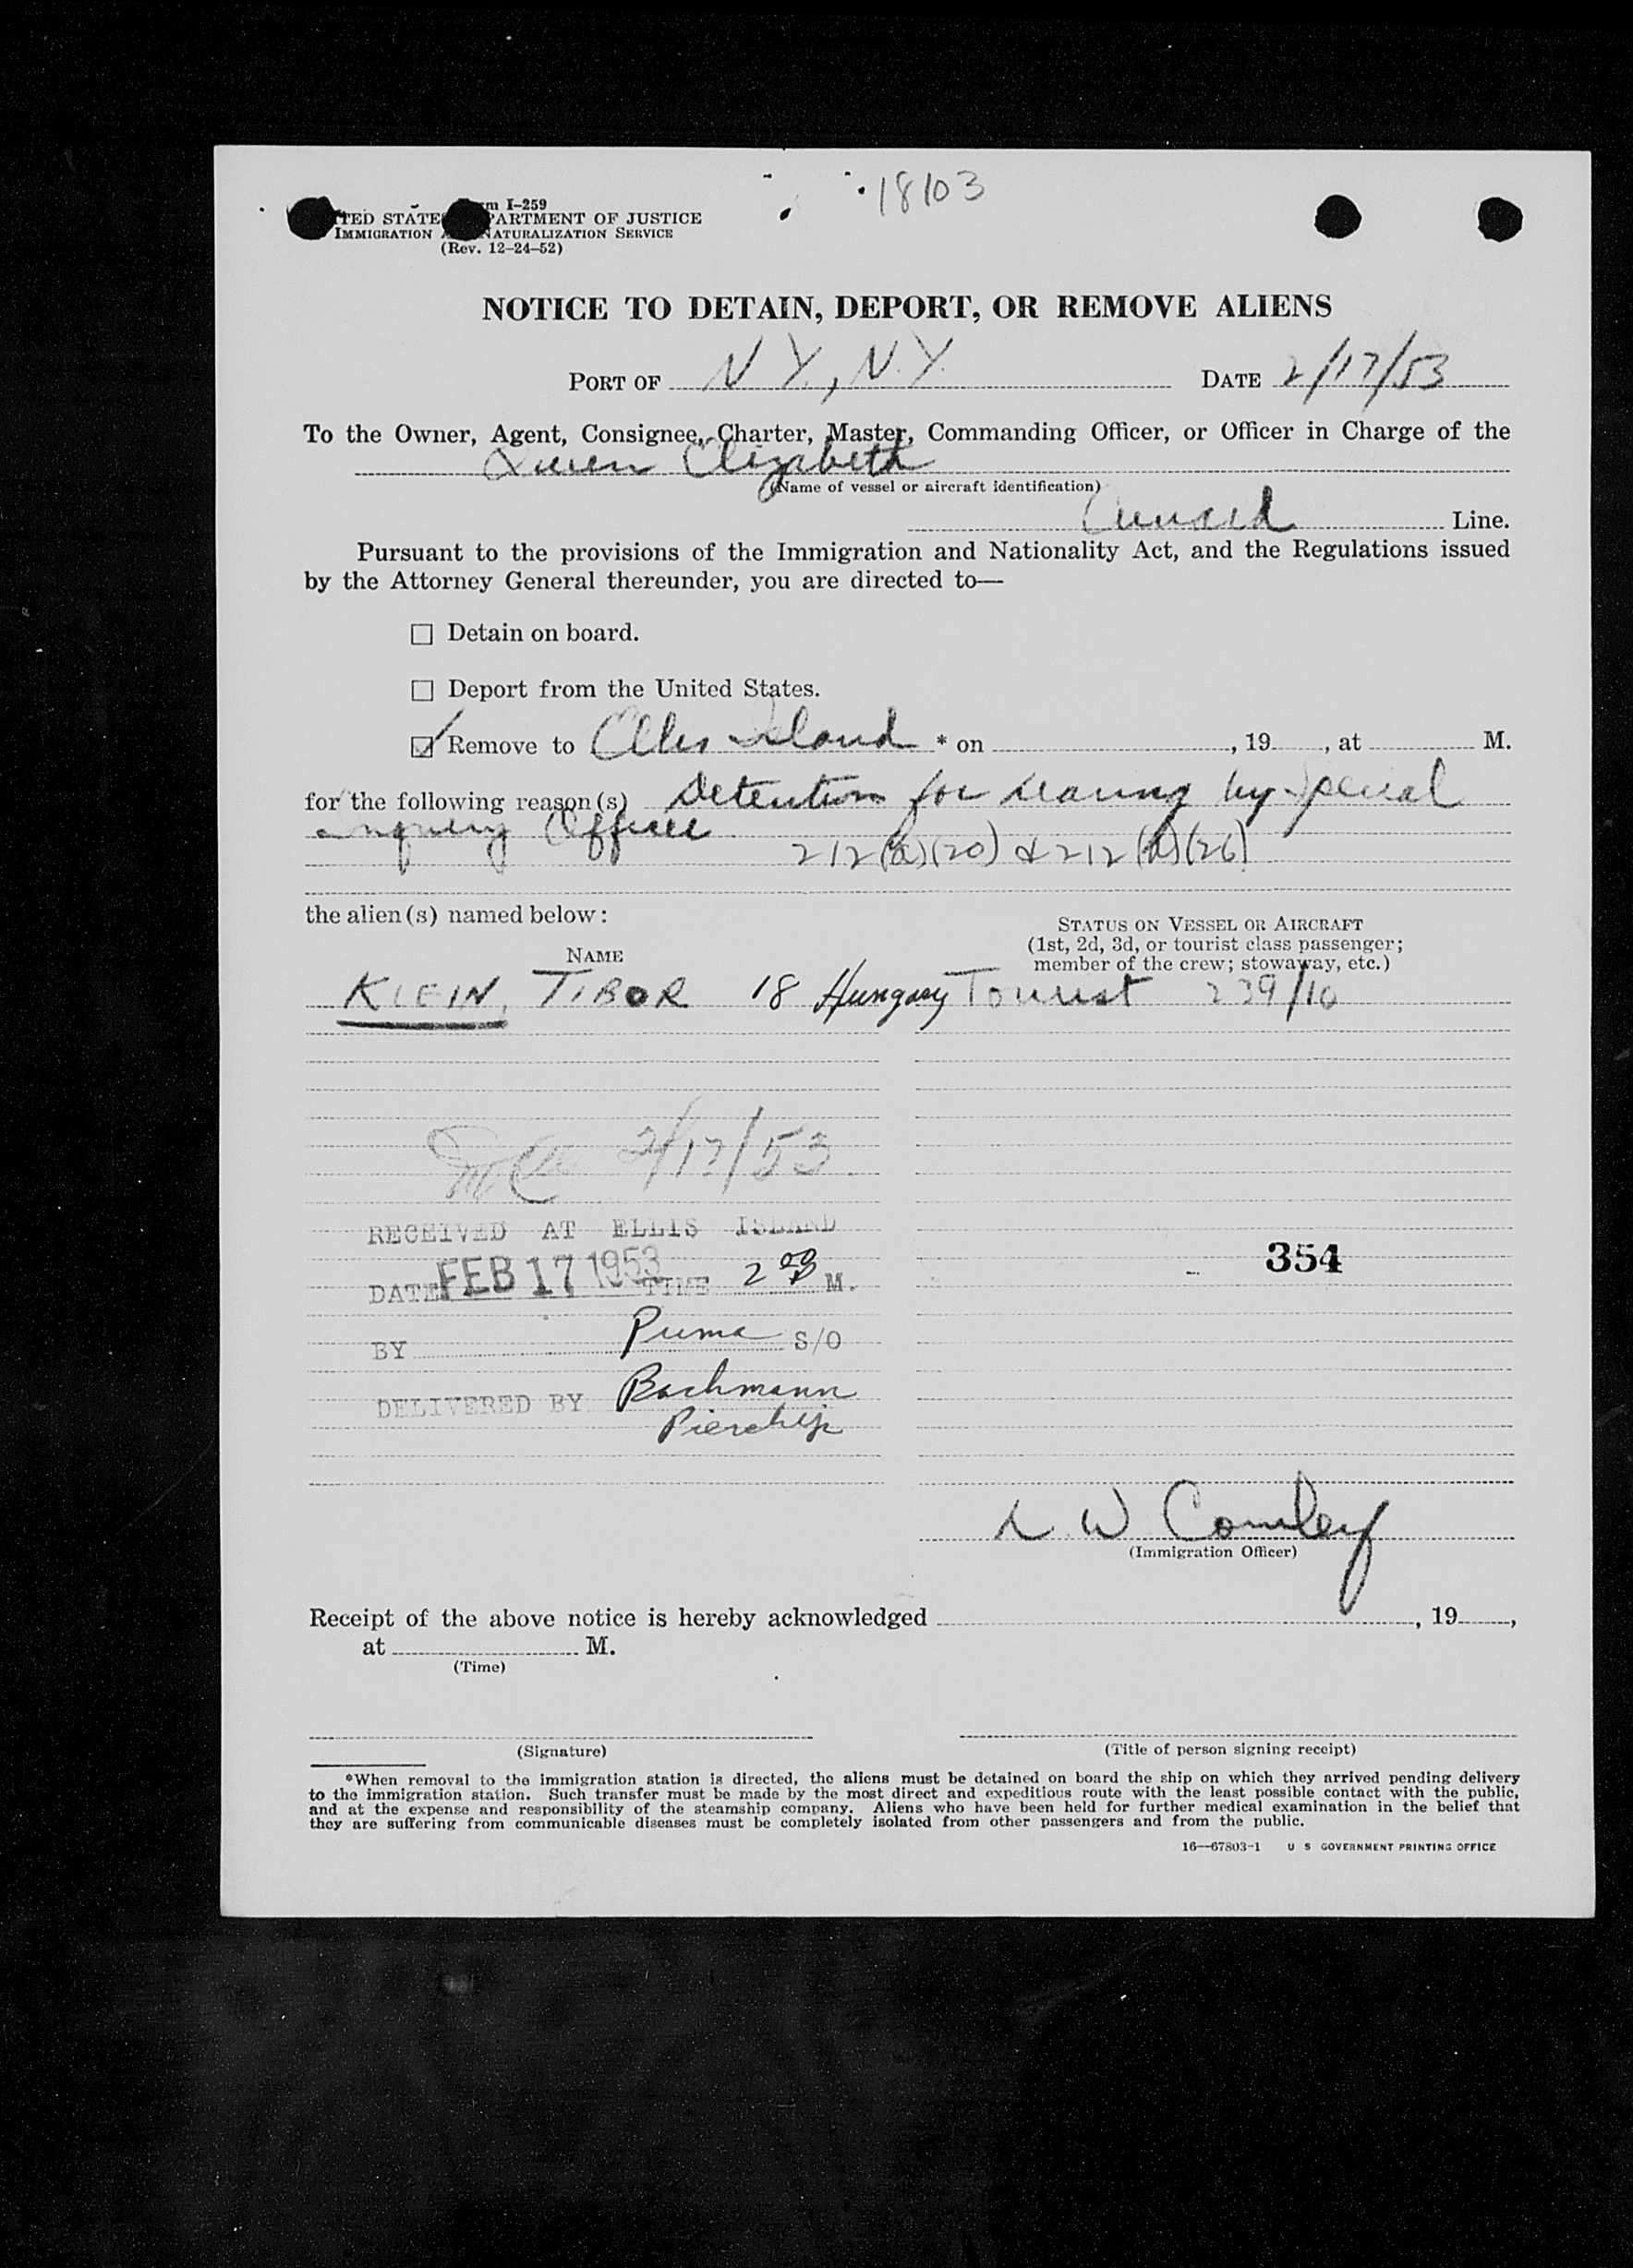 18103
Form I-259
UNITED STATES DEPARTMENT OF JUSTICE
IMMIGRATION AND NATURALIZATION SERVICE
(Rev. 12-24-52)
NOTICE TO DETAIN, DEPORT, OR REMOVE ALIENS
PORT OF N.Y., N.Y. DATE 2/17/53
To the Owner, Agent, Consignee, Charter, Master, Commanding Officer, or Officer in Charge of the
Queen Elizabeth
(Name of vessel or aircraft identification)
Cunard Line.
Pursuant to the provisions of the Immigration and Nationality Act, and the Regulations issued
by the Attorney General thereunder, you are directed to—
☐ Detain on board.
☐ Deport from the United States.
☑ Remove to Ellis Island * on , 19 , at M.
for the following reason(s) Detention for hearing by Special
Inquiry Officer
212(a)(20) & 212(a)(26)
the alien(s) named below:
STATUS ON VESSEL OR AIRCRAFT
(1st, 2d, 3d, or tourist class passenger;
member of the crew; stowaway, etc.)
NAME
KLEIN, TIBOR 18 Hungary Tourist 239/10
2/17/53
RECEIVED AT ELLIS ISLAND
DATE FEB 17 1953 TIME 2 00 P M.
354
BY Puma S/O
DELIVERED BY Bachmann
L. W. Comley
(Immigration Officer)
Receipt of the above notice is hereby acknowledged , 19 ,
at M.
(Time)
(Signature) (Title of person signing receipt)
*When removal to the immigration station is directed, the aliens must be detained on board the ship on which they arrived pending delivery
to the immigration station. Such transfer must be made by the most direct and expeditious route with the least possible contact with the public,
and at the expense and responsibility of the steamship company. Aliens who have been held for further medical examination in the belief that
they are suffering from communicable diseases must be completely isolated from other passengers and from the public.
16—67803-1 U S GOVERNMENT PRINTING OFFICE